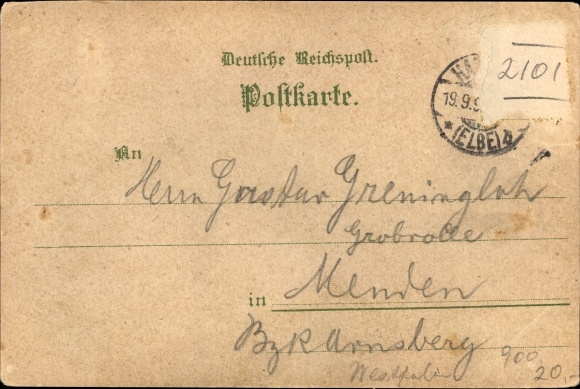 Deutsche Reichspost.
Postkarte.
2101
19.9.9
* (ELBE) *
An
Herrn Gustav Greningloh
Grobrolle
in Menden
Bzk Arnsberg
Westfalen
900
20.-